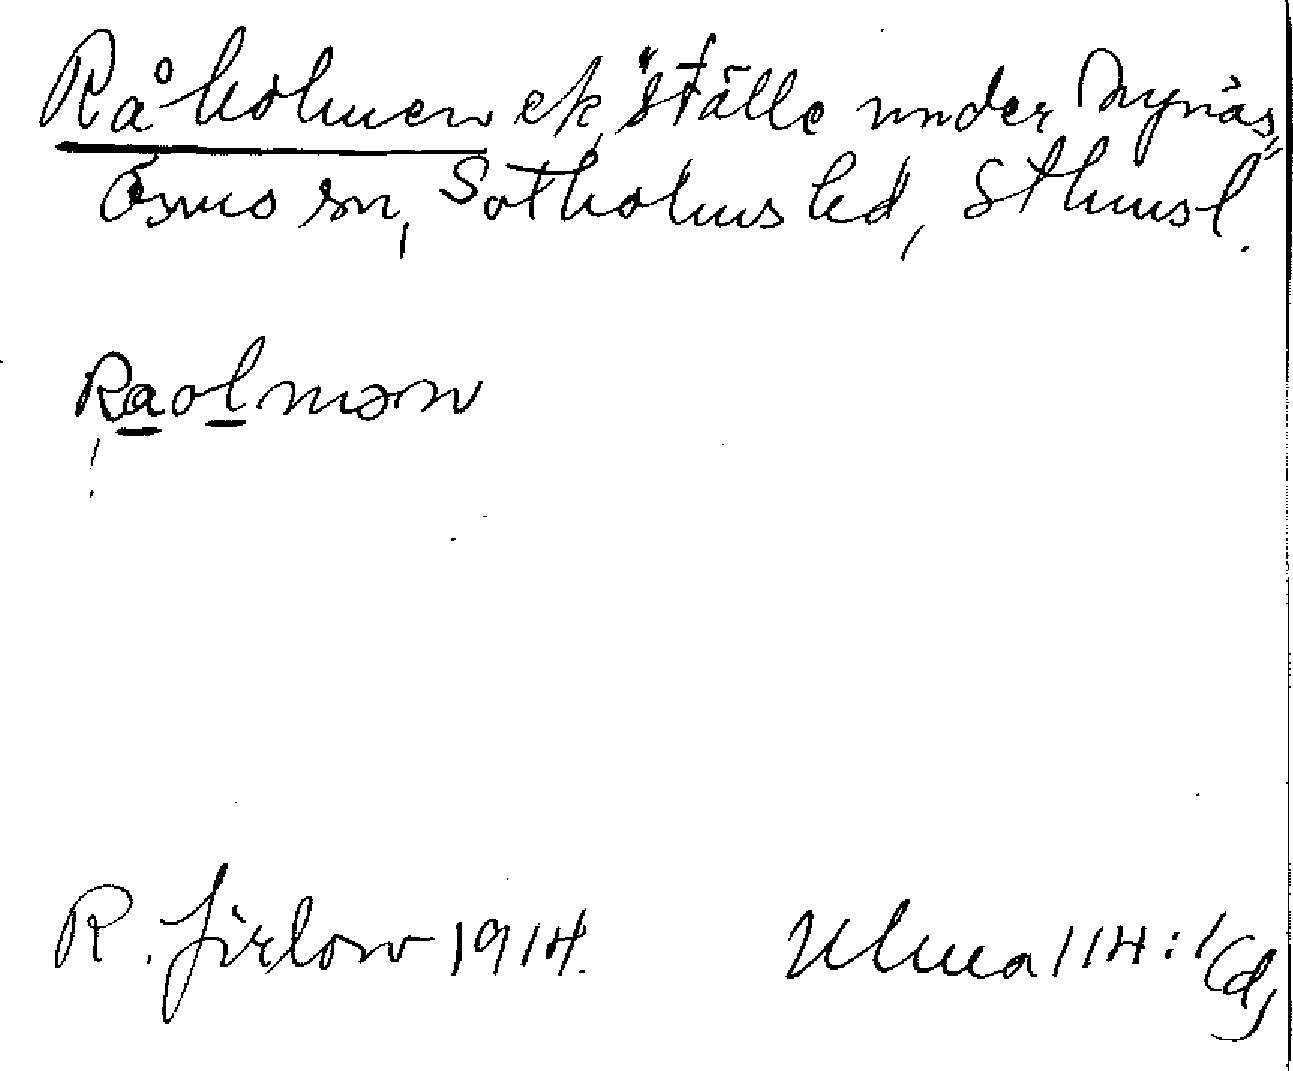 Råholmen ek, ställe under Nynäs,
Ösmo sn, Sotholms hd, Sthmsl.
Raolmən
R. Jirlow 1914. Ulma 114:1(d)